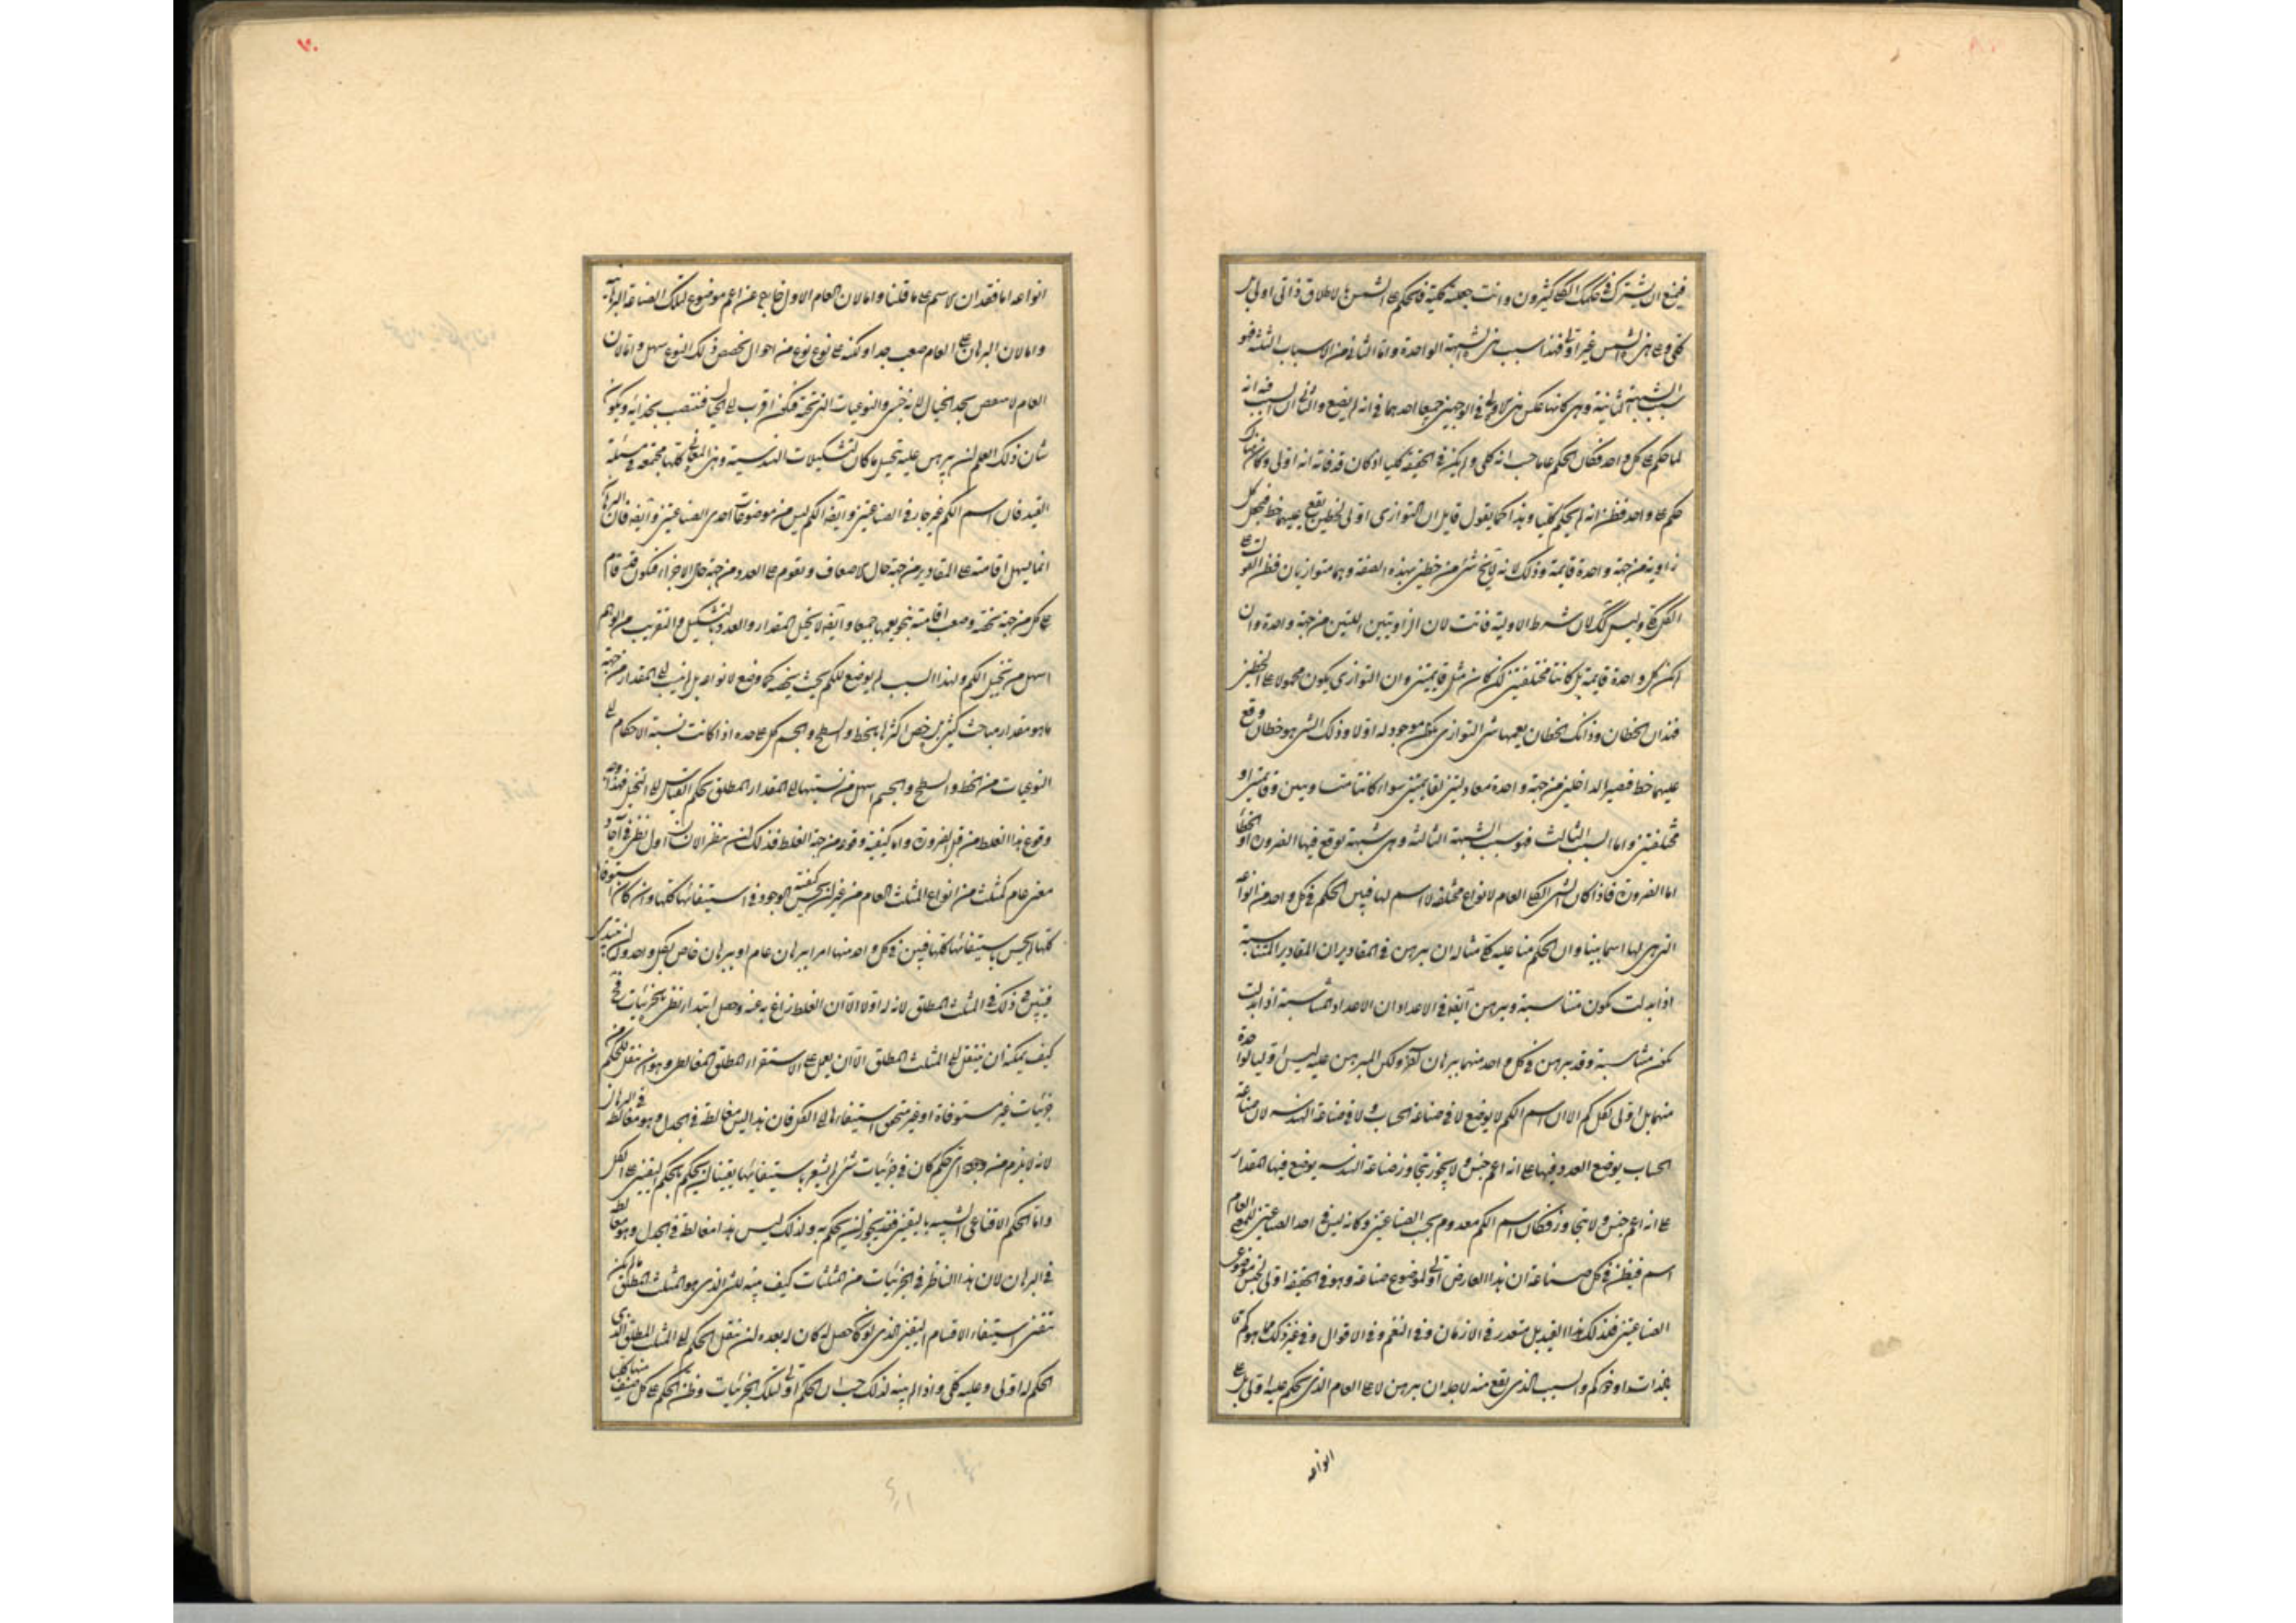 فيمنع ان يشترك في حكمك الكلي كثيرون وانت جعلته كلية فالحكم على الشمس بالاطلاق ذاتي اولي بل
كلي وعلى هذه الشمس غير اولي فهذا سبب هذه الشبهة الواحدة واما الثاني من الاسباب الثلثة فهو
سبب الشبهة الثانية وهي كانها عكس هذه الاولى في الوجهين جميعا احدهما في انه لم يضع والثاني ان السبب فيه انه
لما حكم على كل واحد فكان الحكم عاما حسب انه كلي ولم يكن في الحقيقة كليا اذ كان قد فاته انه اولي وكان هناك
حكم على واحد فظن انه لم يحكم كليا وهذا كما يقول قايل ان التوازي اولي لخطين يقع عليهما خط فيجعل كل
زاوية من جهة واحدة قائمة وذلك لانه لا يخ شئ من خطين بهذه الصفة وهما متوازيان فظن القول على
الكل كلي وليس كذلك لان شرط الاولية فائت لان الزاويتين اللتين من جهة واحدة وان
لم تكن كل واحدة قايمة بل كانتا مختلفتين لكن كانتا مثل قايمتين وان التوازي يكون محمولا على الخطين
فهذان الخطان وذانك الخطان يعمهما شئ التوازي يكون موجودا له اولا وذلك الشئ هو خطان وقع
عليهما خط فصير الداخلتين من جهة واحدة معادلتين لقايمتين سواء كانتا متساويتين وقايمتين او
مختلفتين واما السبب الثالث فهو سبب الشبهة الثالثة وهي شبهة توقع فيها الضرورة او الخطا
اما الضرورة فاذا كان الشئ الكلي العام لانواع مختلفة لا اسم لها فيبين الحكم في كل واحد من انواعه
التي هي لها اسما بينا وان الحكم منا عليه كلي مثاله ان يبرهن في المقادير ان المقادير المتناسبة
اذا ابدلت تكون متناسبة ويبرهن ايضا في الاعداد ان الاعداد المتناسبة اذا ابدلت
تكون متناسبة وقد يبرهن في كل واحد منهما ببرهان اخر ولكن المبرهن عليه ليس اوليا لواحدة
منهما بل اولي لكل كم الا ان اسم الكم لا يوضع لا في صناعة الحساب ولا في صناعة الهندسة لان صناعة
الحساب يوضع العدد فيها على انه اعم جنس ولا يجوز يتجاوز وصناعة الهندسة يوضع فيها المقدار
على انه اعم جنس ولا يتجاوز فكان اسم الكم معدوم بحسب الصناعتين وكانه ليس في احد الصناعتين للمعنى العام
اسم فيظن في كل صناعة ان هذا العارض اولي لموضوع صناعة وهو في الحقيقة اولي لجنس موضوعي
الصناعتين فكذلك هذا التبديل متعذر في الازمان وفي النغم وفي الاقوال وفي غير ذلك مما هو كم
بذاته او ذو كم والسبب الذي يقع منه لاجله ان يبرهن لا على العام الذي الحكم عليه اولي بل على
انواعه
انواعه اما فقدان الاسم على ما قلنا واما لان العام الاول خارج عن اعم موضوع لتلك الصناعة البرهانية
واما لان البرهان على العام صعب جدا ولكنه على نوع نوع من احوال تخصص ذلك النوع سهل واما لان
العام لا معص بحد الخيال لانه جنس والنوعيات التي تحته فيكون اقرب الى الخيال فتنصب بحذائه ويكون
شان ذلك العلم ان يبرهن عليه بتخييل ما كان التشكيلات الهندسية وهذه المعاني كلها مجتمعة في مسئلة
التبديل فان اسم الكم غير جار في الصناعتين وايضا الكم ليس من موضوعات احدى الصناعتين وايضا فان البرهان
انما يسهل اقامته على المقادير من جهة حال الاضعاف وتقوم على العدد من جهة حال الاجزاء فيكون قد قام
على كل من جهة تخصه وصعب اقامته بنحو يعمهما جميعا وايضا لا يتخيل المقدار والعدد بالتشكيل والتقريب من الوهم
اسهل من تخييل الكم ولهذا السبب لم يوضع للكم بحث يخصه كما وضع لانواعه بل لم ينسب الى المقدار من جهة
ما هو مقدار مباحث كثيرة بل خص اكثرها بالخط والسطح والجسم كل على حده اذ كانت نسبة الاحكام الى
النوعيات من الخط والسطح والجسم اسهل من نسبتها الى المقدار المطلق بحكم القياس الى التخيل فهذا وجه
وقوع هذا الغلط من قبل الضرورة واما كيفية وقوعه من جهة الغلط فذلك ان ينظر الانسان اول نظره في احاد
معنى عام كمثلث من انواع المثلث العام من غير ان يحس كيفية الوجود في استيفائها كلها وان كان استوفاها
كلها لم يحس باستيفائها كلها فيبين في كل واحد منها امرا ببرهان عام او ببرهان خاص بكل واحد وان يبتدئ
فيبين ذلك في المثلث المطلق لانه له اولا الا ان الغلط زاغ به عنه وجعل ابتداء نظره بجزئيات فح
كيف يمكنه ان ينتقل الى المثلث المطلق الا ان يعمل على الاستقراء المطلق المغالطي وهو ان ينقل الحكم من
جزئيات غير مستوفاة او غير متحقق استيفاءها الى الكل فان هذا ليس مغالطة في الجدل وهو مغالطة في البرهان
لانه لا يلزم من وجود اي حكم كان في جزئيات شئ لم يشعر باستيفائها يقينا ان يحكم بالحكم اليقيني على الكل
واما الحكم الاقناعي الشبيه باليقين فقد يجوز ان يحكم به ولذلك ليس هذا مغالطة في الجدل وهو مغالطة
في البرهان لان هذا الناظر في الجزئيات من المثلثات كيف ينبه للشئ الذي هو المثلث المطلق ما لم يكن
تقضى استيفاء الاقسام اليقين الذي لو كان حصل له كان له بعده ان ينقل الحكم الى المثلث المطلق الذي
الحكم له اولي وعليه كلي واذا لم ينبه لذلك حسب ان الحكم اولي لتلك الجزئيات وظن الحكم على كل صنف منها كليا